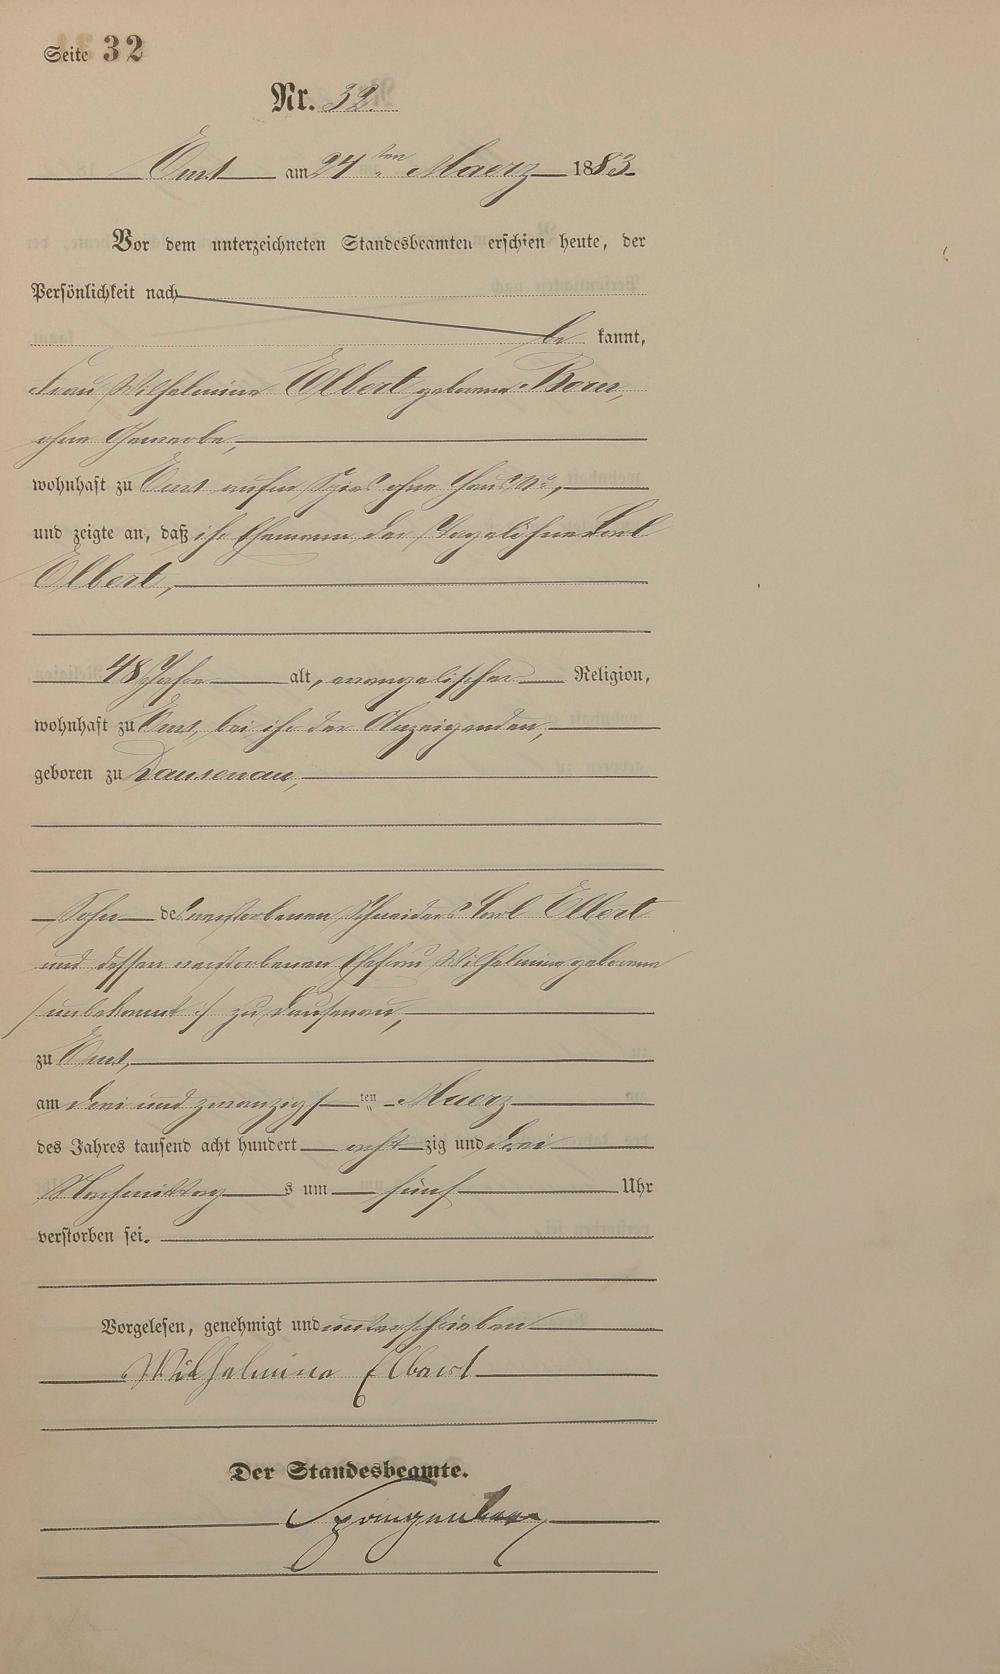 Seite 32
Nr. 32.
Ems am 24 ten Maerz 1883.
Vor dem unterzeichneten Standesbeamten erschien heute, der
Persönlichkeit nach
be kannt,
Frau Wilhelmine Elbert geborene
ohne Gewerbe,
wohnhaft zu Ems aufm Spies ohne Haus No,
und zeigte an, daß ihr Ehemann der Tagelöhner Carl
Elbert,
48 Jahre alt, evangelischer Religion,
wohnhaft zu Ems, bei ihr der Anzeigenden,
geboren zu Dausenau,
Sohn des verstorbenen Schneiders Carl Elbert
und dessen verstorbenen Ehefrau Wilhelmine geborene
/: unbekannt :/ zu Dausenau,
zu Ems,
am drei und zwanzigs ten Maerz
des Jahres tausend acht hundert acht zig und drei
Nachmittag s um fünf Uhr
verstorben sei.
Vorgelesen, genehmigt und unterschrieben
Wilhelmine Elbert
Der Standesbeamte.
Spangenberg